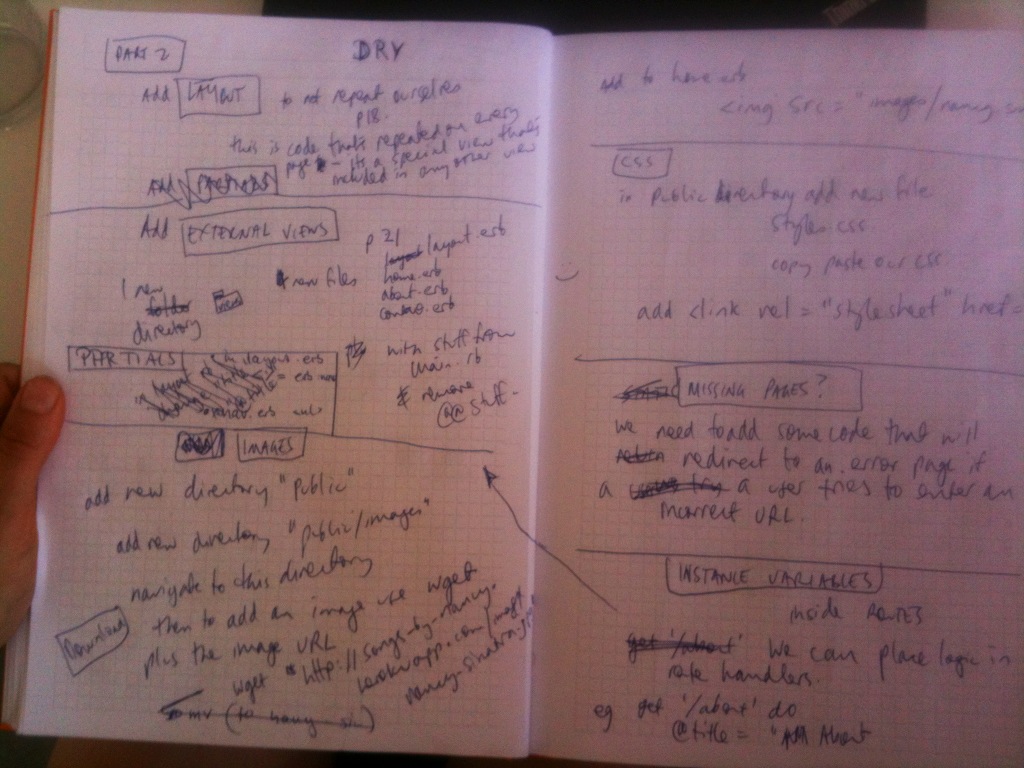 PART 2
DRY
Add LAYOUT to not repeat ourselves
p18.
this is code that's repeated on every
page - its a special view that's
included in any other view
Add PARTIALS
Add EXTERNAL VIEWS
p 21
layout layout.erb
home.erb
about.erb
contact.erb
4 new files
1 new
folder
directory
with stuff from
main.rb
& remove
@@ stuff.
PARTIALS
IMAGES
add new directory "public"
add new directory "public/images"
navigate to this directory
then to add an image use wget
plus the image URL
Download
wget http://songs-by-nancy.
herokuapp.com/images/
nancy-sinatra.jpg
Add to home.erb
<img src = "images/nancy
CSS
in public directory add new file
styles.css
copy paste our css
add <link rel = "stylesheet" href=
MISSING PAGES?
we need to add some code that will
return redirect to an error page if
a a user tries to enter an
incorrect URL.
INSTANCE VARIABLES
inside ROUTES
get '/about' We can place logic in
route handlers.
eg get '/about' do
@title = "All About